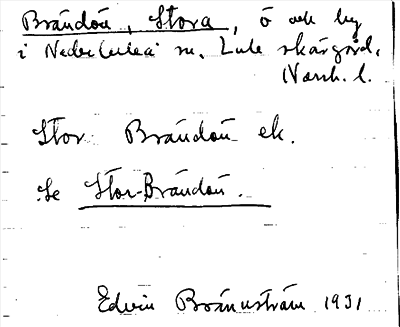 Brändön, Stora, ö och by
i Nederluleå sn, Lule skärgård,
Norrb. l.
Stor Brändön ek.
Se Stor-Brändön.
Edvin Brännström 1931